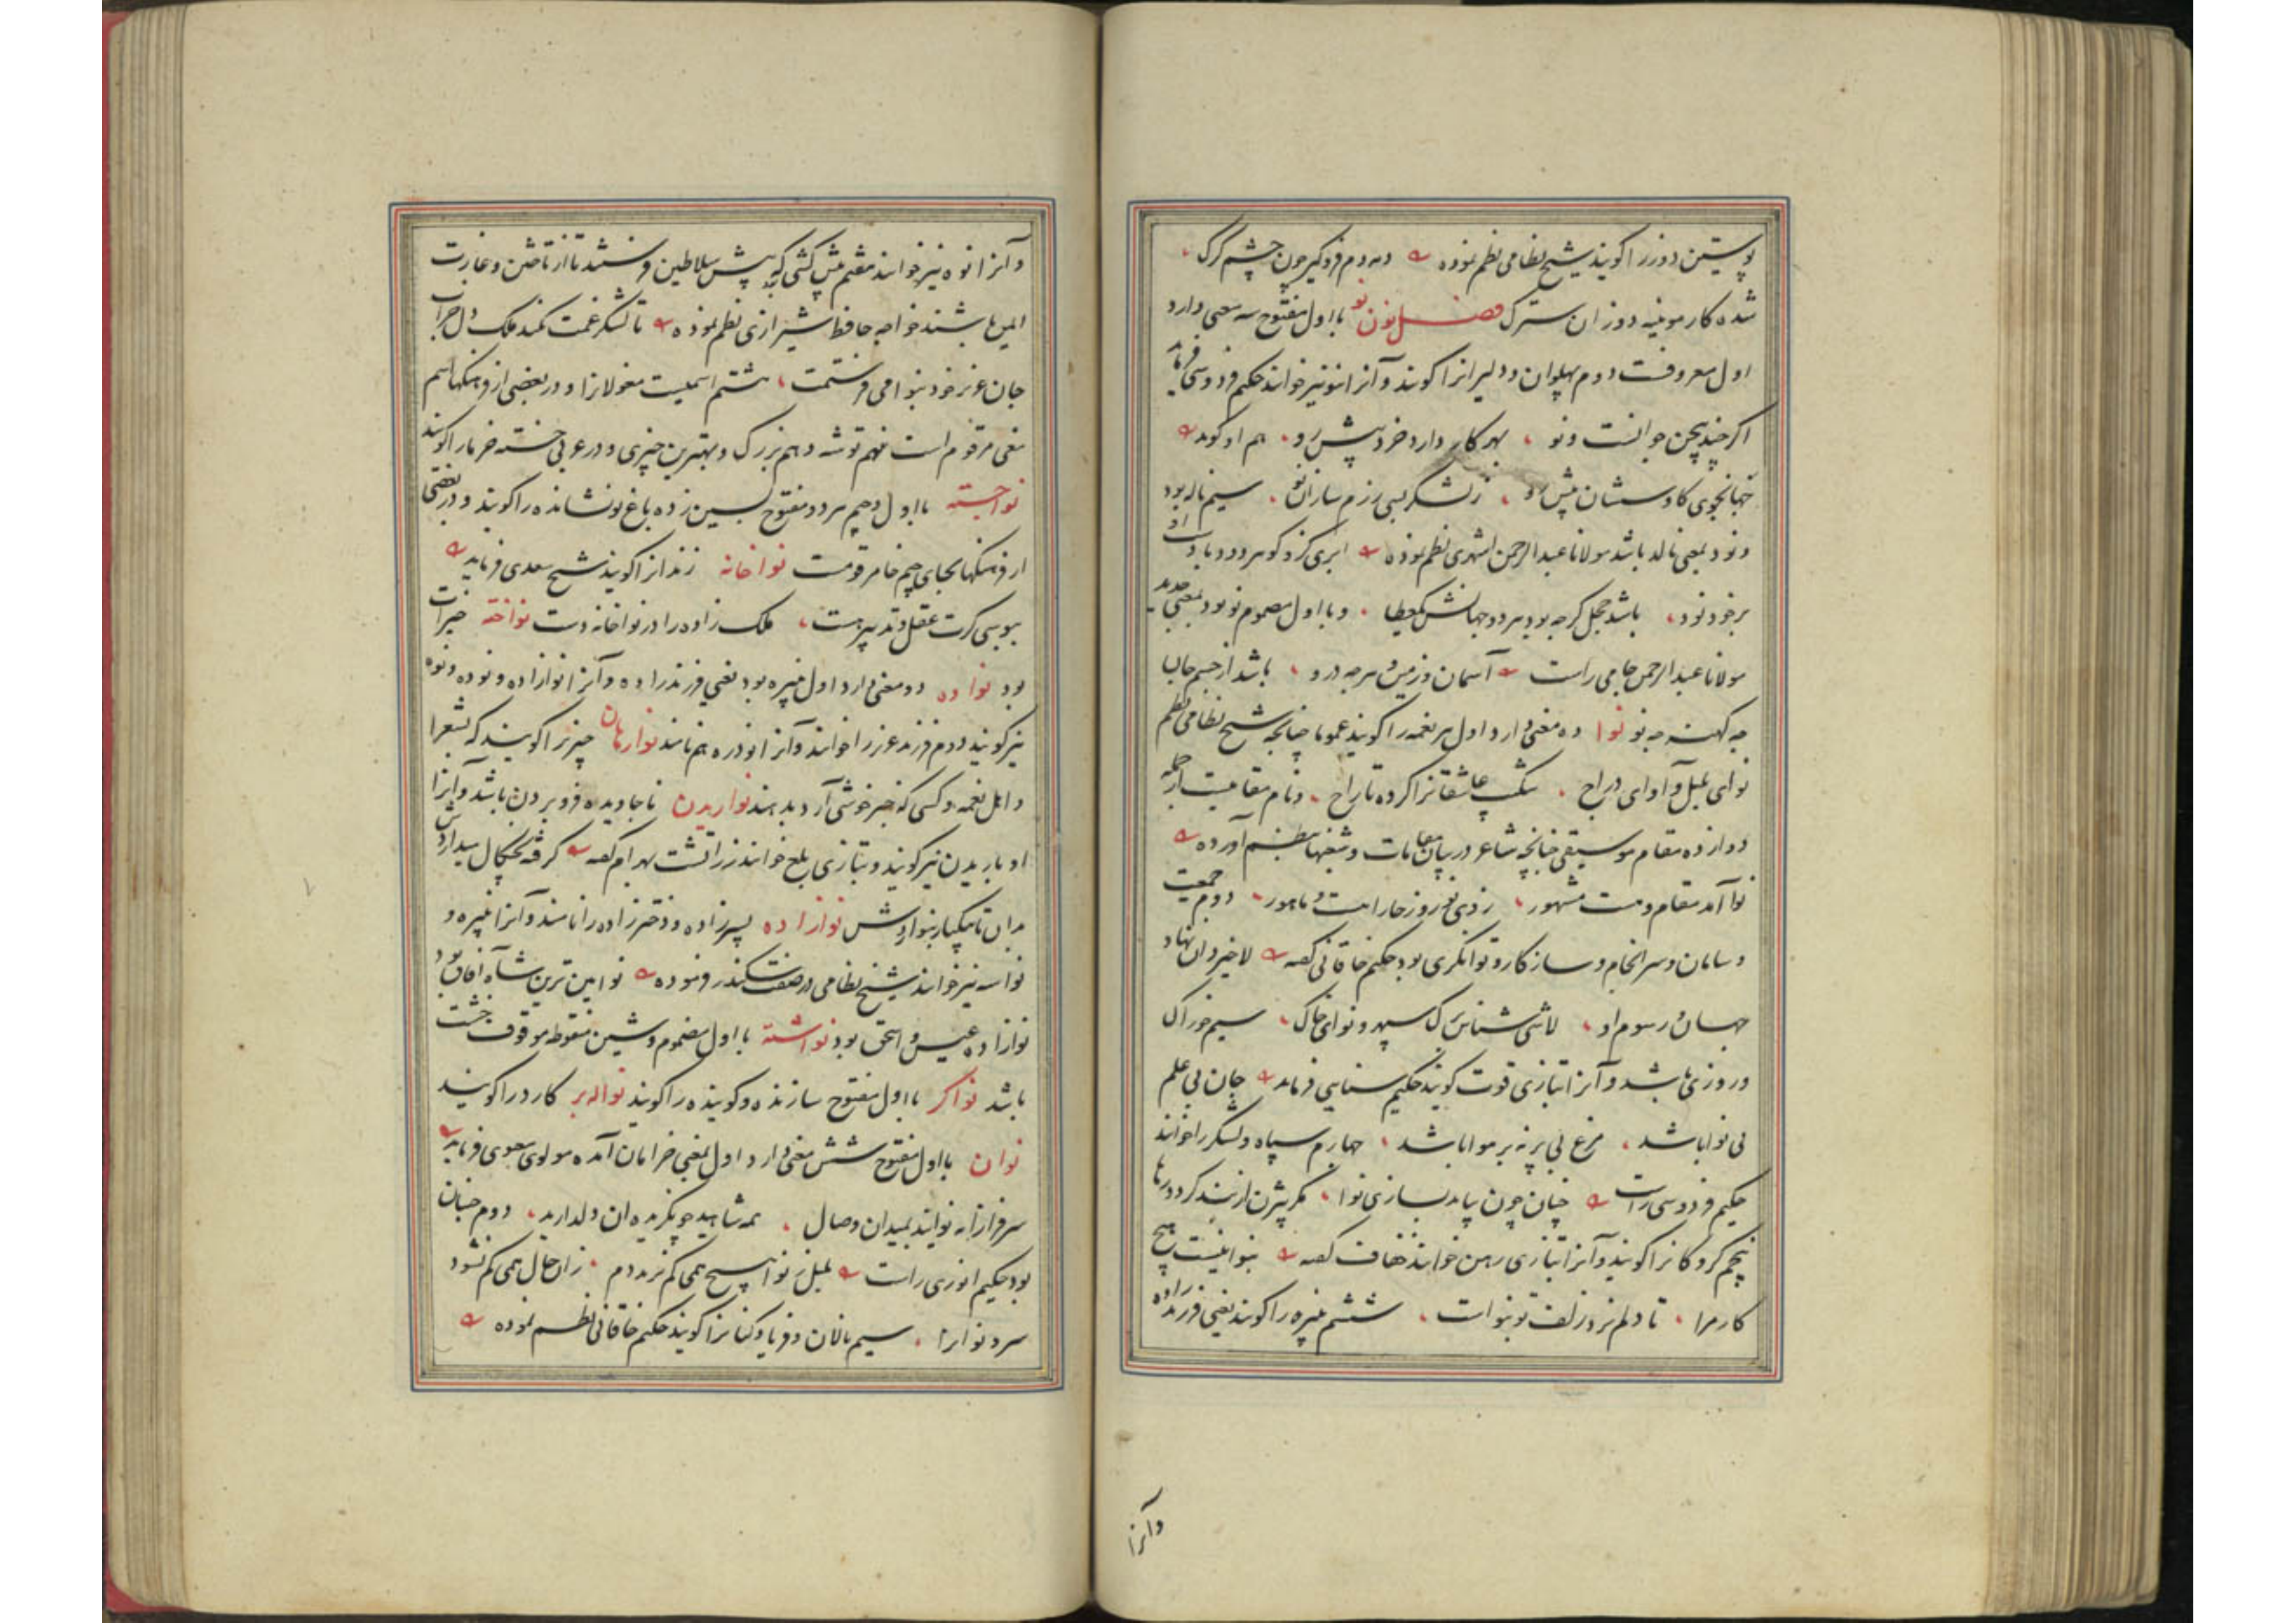 پوستین دوزرا گویند شیخ نظامی نظم نموده دمه دم فروگیر چون چشم گرگ
شده کار موئینه دوزان سترک فصل نون نو با اول مفتوح سه معنی دارد
اول معروفست دوم پهلوان و دلیرانرا گویند و آنرا نیو نیز خوانند حکیم فردوسی فرماید
اگر چند بیچن جوانست و نو بهر کار دارد خرد پیش رو هم او گوید
جهانجوی کاوسشان پیش رو ز لشکر بسی رزم سازان نو سیم ناله بود
و نود بمعنی نالد باشد مولانا عبدالرحمن نظم نموده ابری کزو گوهر رود و باد او
بر خود نود باشد خجل گرچه بود هر دو جهانش عطا و با اول مضموم نو بود بمعنی جدید
مولانا عبدالرحمن جامی راست آسمان و زمین و هرچه درو باشد از جسم جان
چه کهنه چه نو نوا ده معنی دارد اول هر نغمه را گویند عموما چنانچه شیخ نظامی نظم
نوای بلبل و آوای دراج شکیب عاشقانرا کرده تاراج و نام مقامیست از جمله
دوازده مقام موسیقی چنانچه شاعر در بیان مقامات و شعبها بنظم آورده
نوا آمد مقام و هست مشهور ز نوروز خارا هست و ماهور دوم جمعیت
و سامان و سرانجام و ساز کار و توانگری بود حکیم خاقانی گفته لاخیر دان نهاد
جهان و رسوم او لاشی شناس برگ سپهر و نوای خاک سیم خوراک
و روزی باشد و آنرا بتازی قوت گویند حکیم سنایی فرماید جان بی علم
بی نوا باشد مرغ بی پر نه بر هوا باشد چهارم سپاه و لشکر را خوانند
حکیم فردوسی راست چنان چون بیابد بسازی نوا مگر بیژن از بند گردد رها
پنجم گروگانرا گویند و آنرا بتازی رهن خوانند خفاف گفته بنوا نیست هیچ
کار مرا تا دلم نزد زلف تو بنواست ششم نبیره را گویند یعنی فرزند زاده
وآنرا
و آنرا نوه نیز خوانند هفتم پیش کشی که پیش سلاطین فرستند تا از تاختن و غارت
ایمن باشند خواجه حافظ شیرازی نظم نموده تا لشکر غمت نکند ملک دل خراب
جان عزیز خود بنوا می فرستمت هشتم اسمیست مغولانرا و در بعضی از فرهنگها اسم
مغی مرقوم است نهم توشه دهم بزرگ و بهترین چیزی و در عربی خسته خرما را گویند
نواجسته با اول و جیم هر دو مفتوح بسین زده باغ نو نشانده را گویند و در بعضی
از فرهنگها بجای جیم خا مرقومست نواخانه زندانرا گویند شیخ سعدی فرماید
ببوسی گرت عقل و تدبیر هست ملک زاده را در نواخانه دست نواخته خیرات
بود نواده دو معنی دارد اول نبیره بود یعنی فرزند زاده و آنرا نوازاده و نوده و نوه
نیز گویند دوم فرزند عزیز را خوانند و آنرا نودره هم نامند نوارهان چیزیرا گویند که بشعرا
و اهل نغمه و کسی که خبر خوشی آرد بدهند نواریدن ناجاویده فرو بردن باشد و آنرا
اوباریدن نیز گویند و بتازی بلع خوانند زراتشت بهرام گفته گرفته بچنگال میدارش
بدان تا بیکبار بنواردش نوازاده پسرزاده و دخترزاده را نامند و آنرا نبیره و
نواسه نیز خوانند شیخ نظامی در صفت سکندر فرموده نو آیین ترین شاه آفاق بود
نوازاده عیص و اسحق بود نواشته با اول مضموم و شین منقوطه موقوف خشت
باشد نواگر با اول مفتوح سازنده و گوینده را گویند نواله بر کارد را گویند
نوان با اول مفتوح شش معنی دارد اول بمعنی خرامان آمده مولوی معنوی فرماید
سرفرازانه نوایند بمیدان وصال همه شاهید چو بگزیده آن دلدارید دوم جنبان
بود حکیم انوری راست بلبل ز نوا هیچ همی کم نزند دم زان حال همی کم نشود
سرو نوانرا سیم نالان و فریاد کنانرا گویند حکیم خاقانی نظم نموده